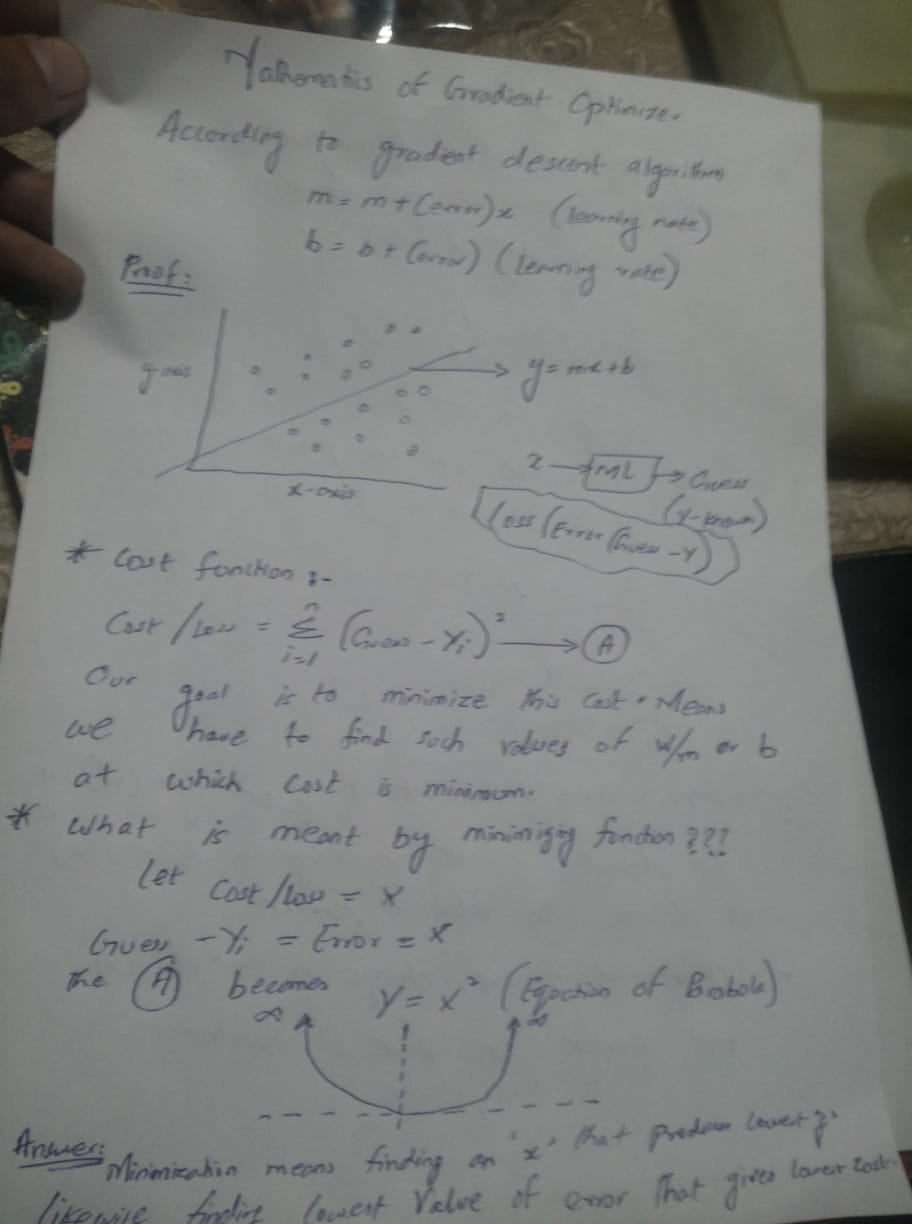 Mathematis of Gradient Optimizer
According to gradient descent algorithm
m = m + (error) x (learning rate)
b = b + (error) (learning rate)
Proof:
y-axis
y = mx + b
x-axis
x → ML → Guess
(Y-known)
Loss (Error (Guess - Y)
* Cost function :-
Cost / Loss = Σ i=1 n (Guess - Yi)² → A
Our goal is to minimize this cost. Means
we have to find such values of w/m or b
at which cost is minimum.
* What is meant by minimizig function ???
Let Cost / Loss = X
Guess - Yi = Error = X
The A becomes Y = X² (Eqaction of Prabola)
∞ ∞
Answer: Minimization means finding an 'x' that produces lowest y.
likewise finding lowest value of error that gives lowest cost.